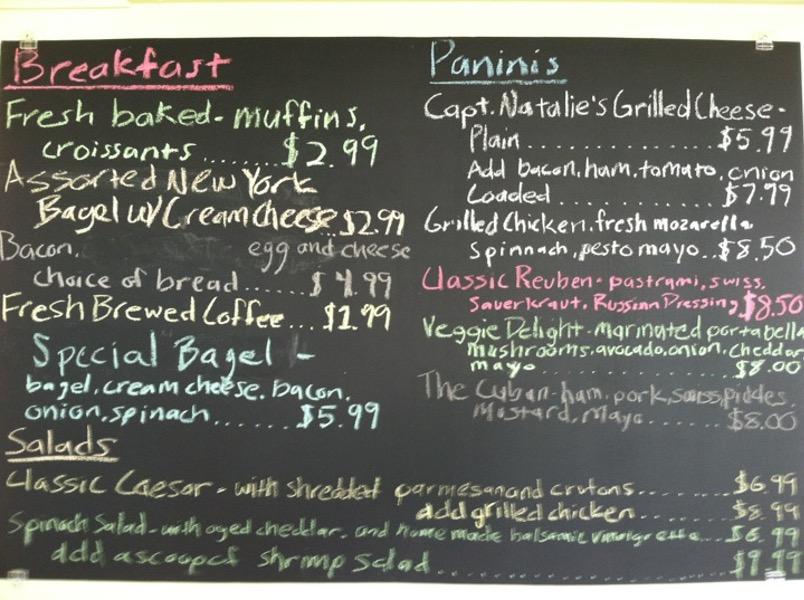 Breakfast
Fresh baked- muffins,
croissants ........ $2.99
Assorted New York
Bagel w/ Cream cheese.. $2.99
Bacon, egg and cheese
choice of bread ....... $4.99
Fresh Brewed Coffee... $1.99
Special Bagel -
bagel, cream cheese, bacon,
onion, spinach ....... $5.99
Paninis
Capt. Natalie's Grilled Cheese-
Plain .................. $5.99
Add bacon, ham, tomato, onion
Loaded ............... $7.99
Grilled Chicken, fresh mozarella
Spinnach, pesto mayo.. $8.50
Classic Reuben- pastrami, swiss,
Sauerkraut, Russian Dressing, $8.50
Veggie Delight- marinated portabella
mushrooms, avocado, onion, cheddar
mayo .................. $8.00
The Cuban- ham, pork, swiss, pickles,
Mustard, Mayo ........ $8.00
Salads
Classic Caesar - with shredded parmesan and crutons ........ $6.99
add grilled chicken ........ $8.99
Spinach Salad- with aged cheddar, and home made balsamic vinaigrette... $6.99
add a scoop of shrimp salad ................ $9.99